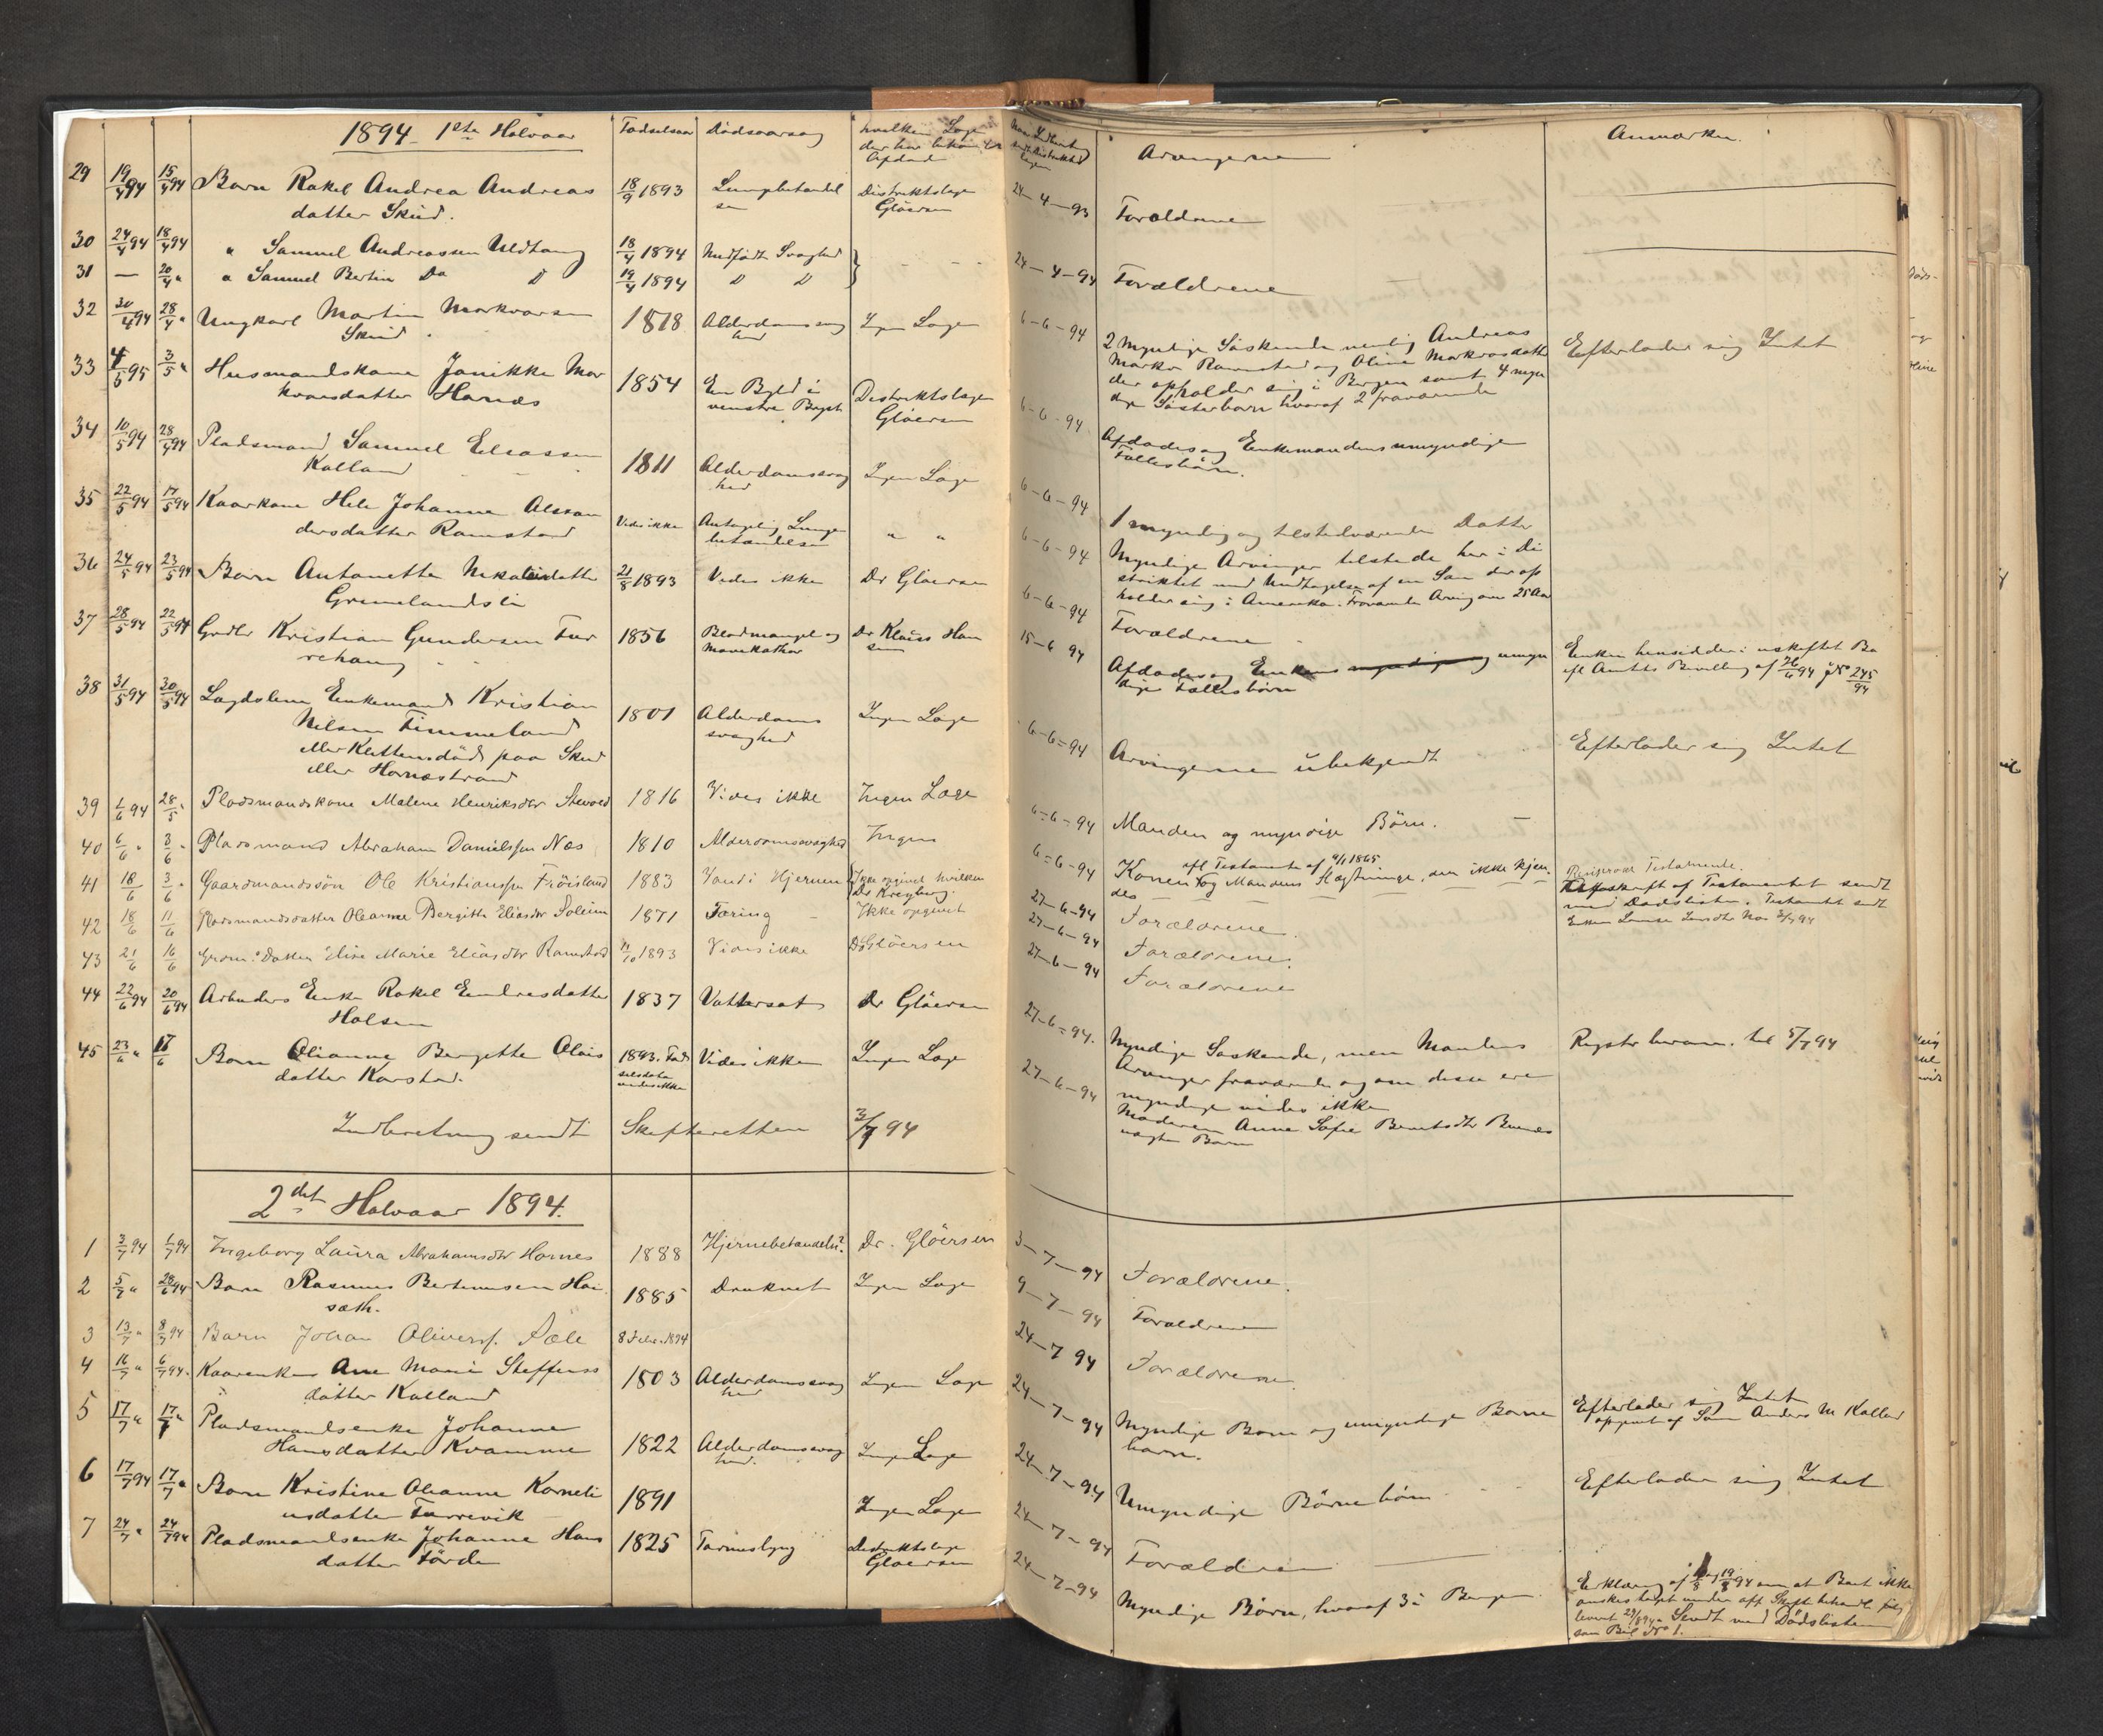 1894 1ste Halvaar Fødselsaar Dødsaarsag hvilken Læge
der har behandlet
Afdøde
29 19/4 94 15/4 94 Barn Rakel Andrea Andreas 18/9 1893 Lungebetændel Distriktslæge
datter Skud. se Gløersen
30 24/4 94 18/4 94 " Samuel Andreassen Uldtang 18/4 1894 Medfødt Svaghed
31 — 20/4 " " Samuel Bertin Do D 19/4 1894 D D
32 30/4 94 28/4 " Ungkarl Martin Markvarsen 1818 Alderdomssvag Ingen Læge
Skud hed
33 4/5 95 3/5 " Husmandskone Janikke Mar 1854 En Byld i Distriktslægen
kvarsdatter Hornæs venstre Bryst Gløersen
34 10/5 94 28/4 94 Pladsmand Samuel Eliassen 1811 Alderdomssvag Ingen Læge
Kalland hed
35 22/5 94 17/5 94 Kaarkone Hele Johanne Alexan Vides ikke Antagelig Lunge " "
dersdatter Ramstad betændelse
36 24/5 94 23/5 94 Barn Antonette Nikolaidatter 21/8 1893 Vides ikke Dr Gløersen
Grimelandsli
37 28/5 94 22/5 94 Grdbr Kristian Gundersen Fur 1856 Blodmangel og Dr Klaus Han
rehaug Mavekathar sen
38 31/5 94 30/5 94 Lægdslem Enkemand Kristian 1801 Alderdoms Ingen Læge
Nilsen Timmeland svaghed
eller Kletten død paa Skud
eller Hornæsstrand
39 1/6 94 28/5 " Pladsmandskone Malene Henriksdtr Stavøed 1816 Vides ikke Ingen Læge
40 6/6 " 3/6 " Pladsmand Abraham Danielssen Næs 1810 Alderdomssvaghed Ingen
41 18/6 3/6 " Gaardmandssøn Ole Kristianssen Frøisland 1883 Vand i Hjernen Ikke opgivet hvilken
Dr Kreyberg.
42 18/6 11/6 Pladsmandsdatter Oleanne Bergitte Eliasdtr Solium 1871 Tæring Ikke opgivet
43 21/6 16/6 Grdm: Datter Elise Marie Eliasdtr Ramstad 11/10 1893 Vides ikke Dr Gløersen
44 22/6 94 20/6 94 Arbeiders Enke Rakel Endresdatter 1837 Vattersot Dr Gløersen
Halsen
45 23/6 " 17/6 Barn Olianne Bergette Olais 1893. Fød Vides ikke Ingen Læge
datter Karstad. selsdato
vides ikke
Indberetning sendt Skifteretten 3/7 94
2det Halvaar 1894.
1 3/7 94 1/7 94 Ingeborg Laura Abrahamsdtr Hornes 1888 Hjernebetændelse. Dr. Gløersen
2 5/7 " 28/6 94 Barn Rasmus Bertinusen Hau 1885 Druknet Ingen Læge
sæth.
3 13/7 " 8/7 94 Barn Johan Oliverss. Sæle 8 Febr. 1894
4 16/7 " 6/7 94 Kaarenke Ane Marie Steffens 1803 Alderdomssvag Ingen Læge
datter Kalland hed
5 17/7 " 17/7 " Pladsmandsenke Johanne 1822 Alderdomssvag Ingen Læge
Hansdatter Kvamme hed.
6 17/7 94 17/7 " Barn Kristine Oleanne Korneli 1891 Ingen Læge
usdatter Furrevik
7 24/7 " 24/7 94 Pladsmandsenke Johanne Hans 1825 Tarmslyng Distriktslæge
datter Førde Gløersen
Naar Indberetning
sendt Distrikts
lægen Arvingerne Anmærkn.
24-4-93 Forældrene
24-4-94 Forældrene
6-6-94 2 Myndige Søskende nemlig Andreas Efterlader sig Intet
Markv Ramstad og Oline Markvarsdatter
der opholder sig i Bergen samt 4 myn
dige Søsterbørn hvoraf 2 fraværende
6-6-94 Afdødes og Enkemandens umyndige
Fællesbørn.
6-6-94 1 myndig og tilstedværende Datter
6-6-94 Myndige Arvinger tilstede her i Di
striktet med Undtagelse af en Søn der op
holder sig i Amerika. Fraværende Arving over 25 Aar
6-6-94 Forældrene
15-6 94 Afdødes og Enkens myndige og umyn Enken hensidder i uskiftet Bo
dige Fællesbørn efl Amtets Bevilling af 26/6 94 JN 245/94
6-6-94 Arvingerne ubekjendt Efterlader sig Intet
6-6-94 Manden og myndige Børn.
6-6-94 efl Testamente af 9/1 1865 Reciprokt Testamente.
Konen og Mandens Slægtninge, der ikke kjen Afskrift af Testamentet sendt
des med Dødslisten. Testamentet sendt
27-6-94 Forældrene.
27-6-94 Forældrene.
27-6-94 Forældrene
27-6-94. Myndige Søskende, men Mandens Registr beram. til 5/7 94
Arvinger fraværende og om disse ere
myndige vides ikke
27-6-94 Moderen Anne Sofie Berntsdtr Bunæs
uægte Barn
3-7-94 Forældrene.
9-7-94 Forældrene
24-7 94 Forældrene.
24-7-94 Myndige Børn og umyndige Børne Efterlader sig Intet
børn. opgivet af Søn Anders M Kalland
24-7-94 Umyndige Børnebørn Efterlader sig Intet
24-7-94 Forældrene
24-7-94 Myndige Børn, hvoraf 3 i Bergen Erklæring af 19/8 94 om at Boet ikke
ønskes taget under off Skiftebehandl
levert 29/8 94. Sendt med Dødslisten
som Bil No 1.